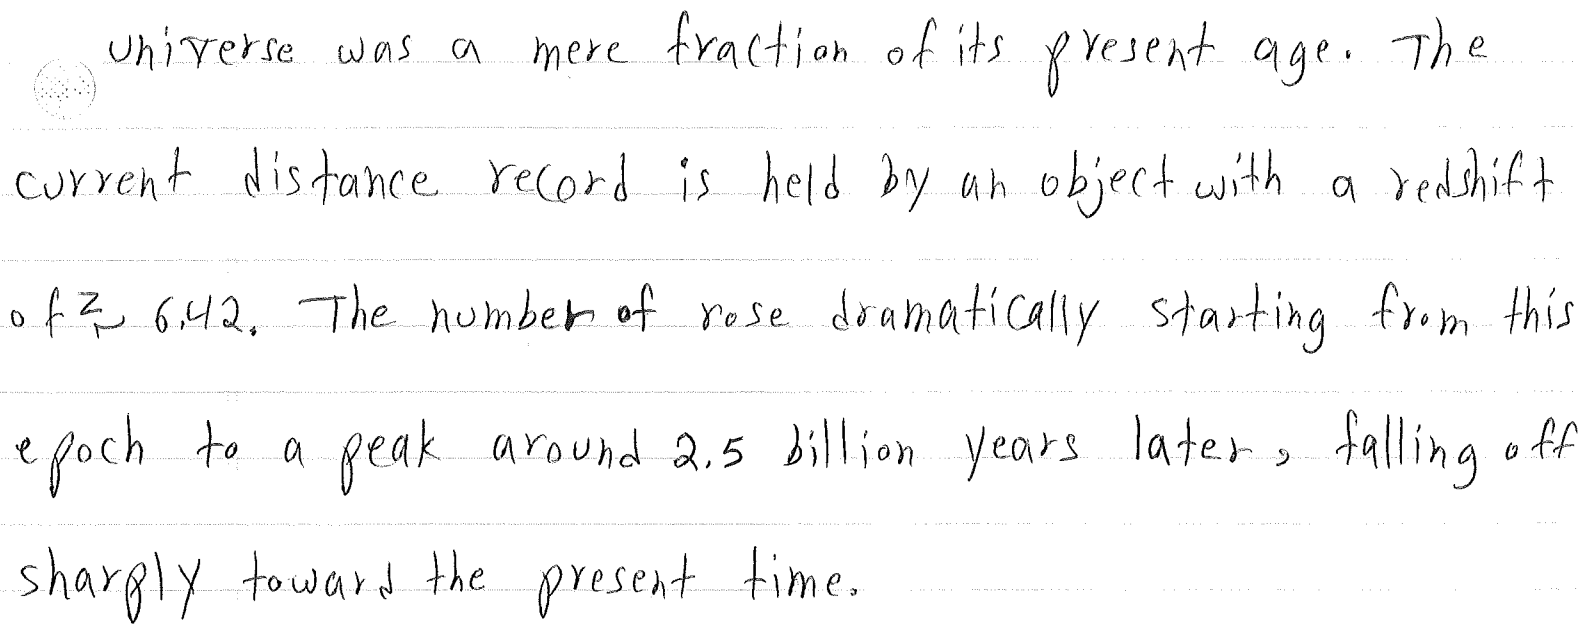 universe was a mere fraction of its present age. The
current distance record is held by an object with a redshift
of z~ 6.42. The number of rose dramatically starting from this
epoch to a peak around 2.5 billion years later, falling off
sharply toward the present time.